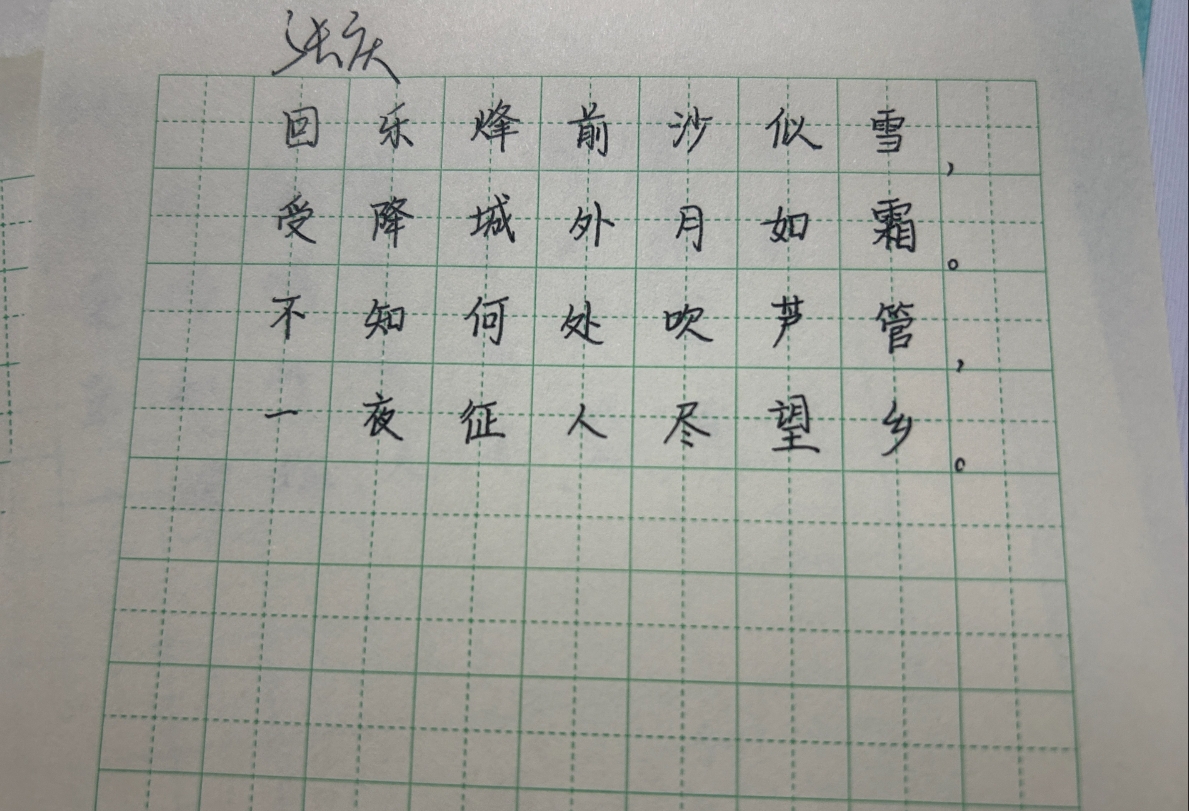 张庆
回乐烽前沙似雪，
受降城外月如霜。
不知何处吹芦管，
一夜征人尽望乡。